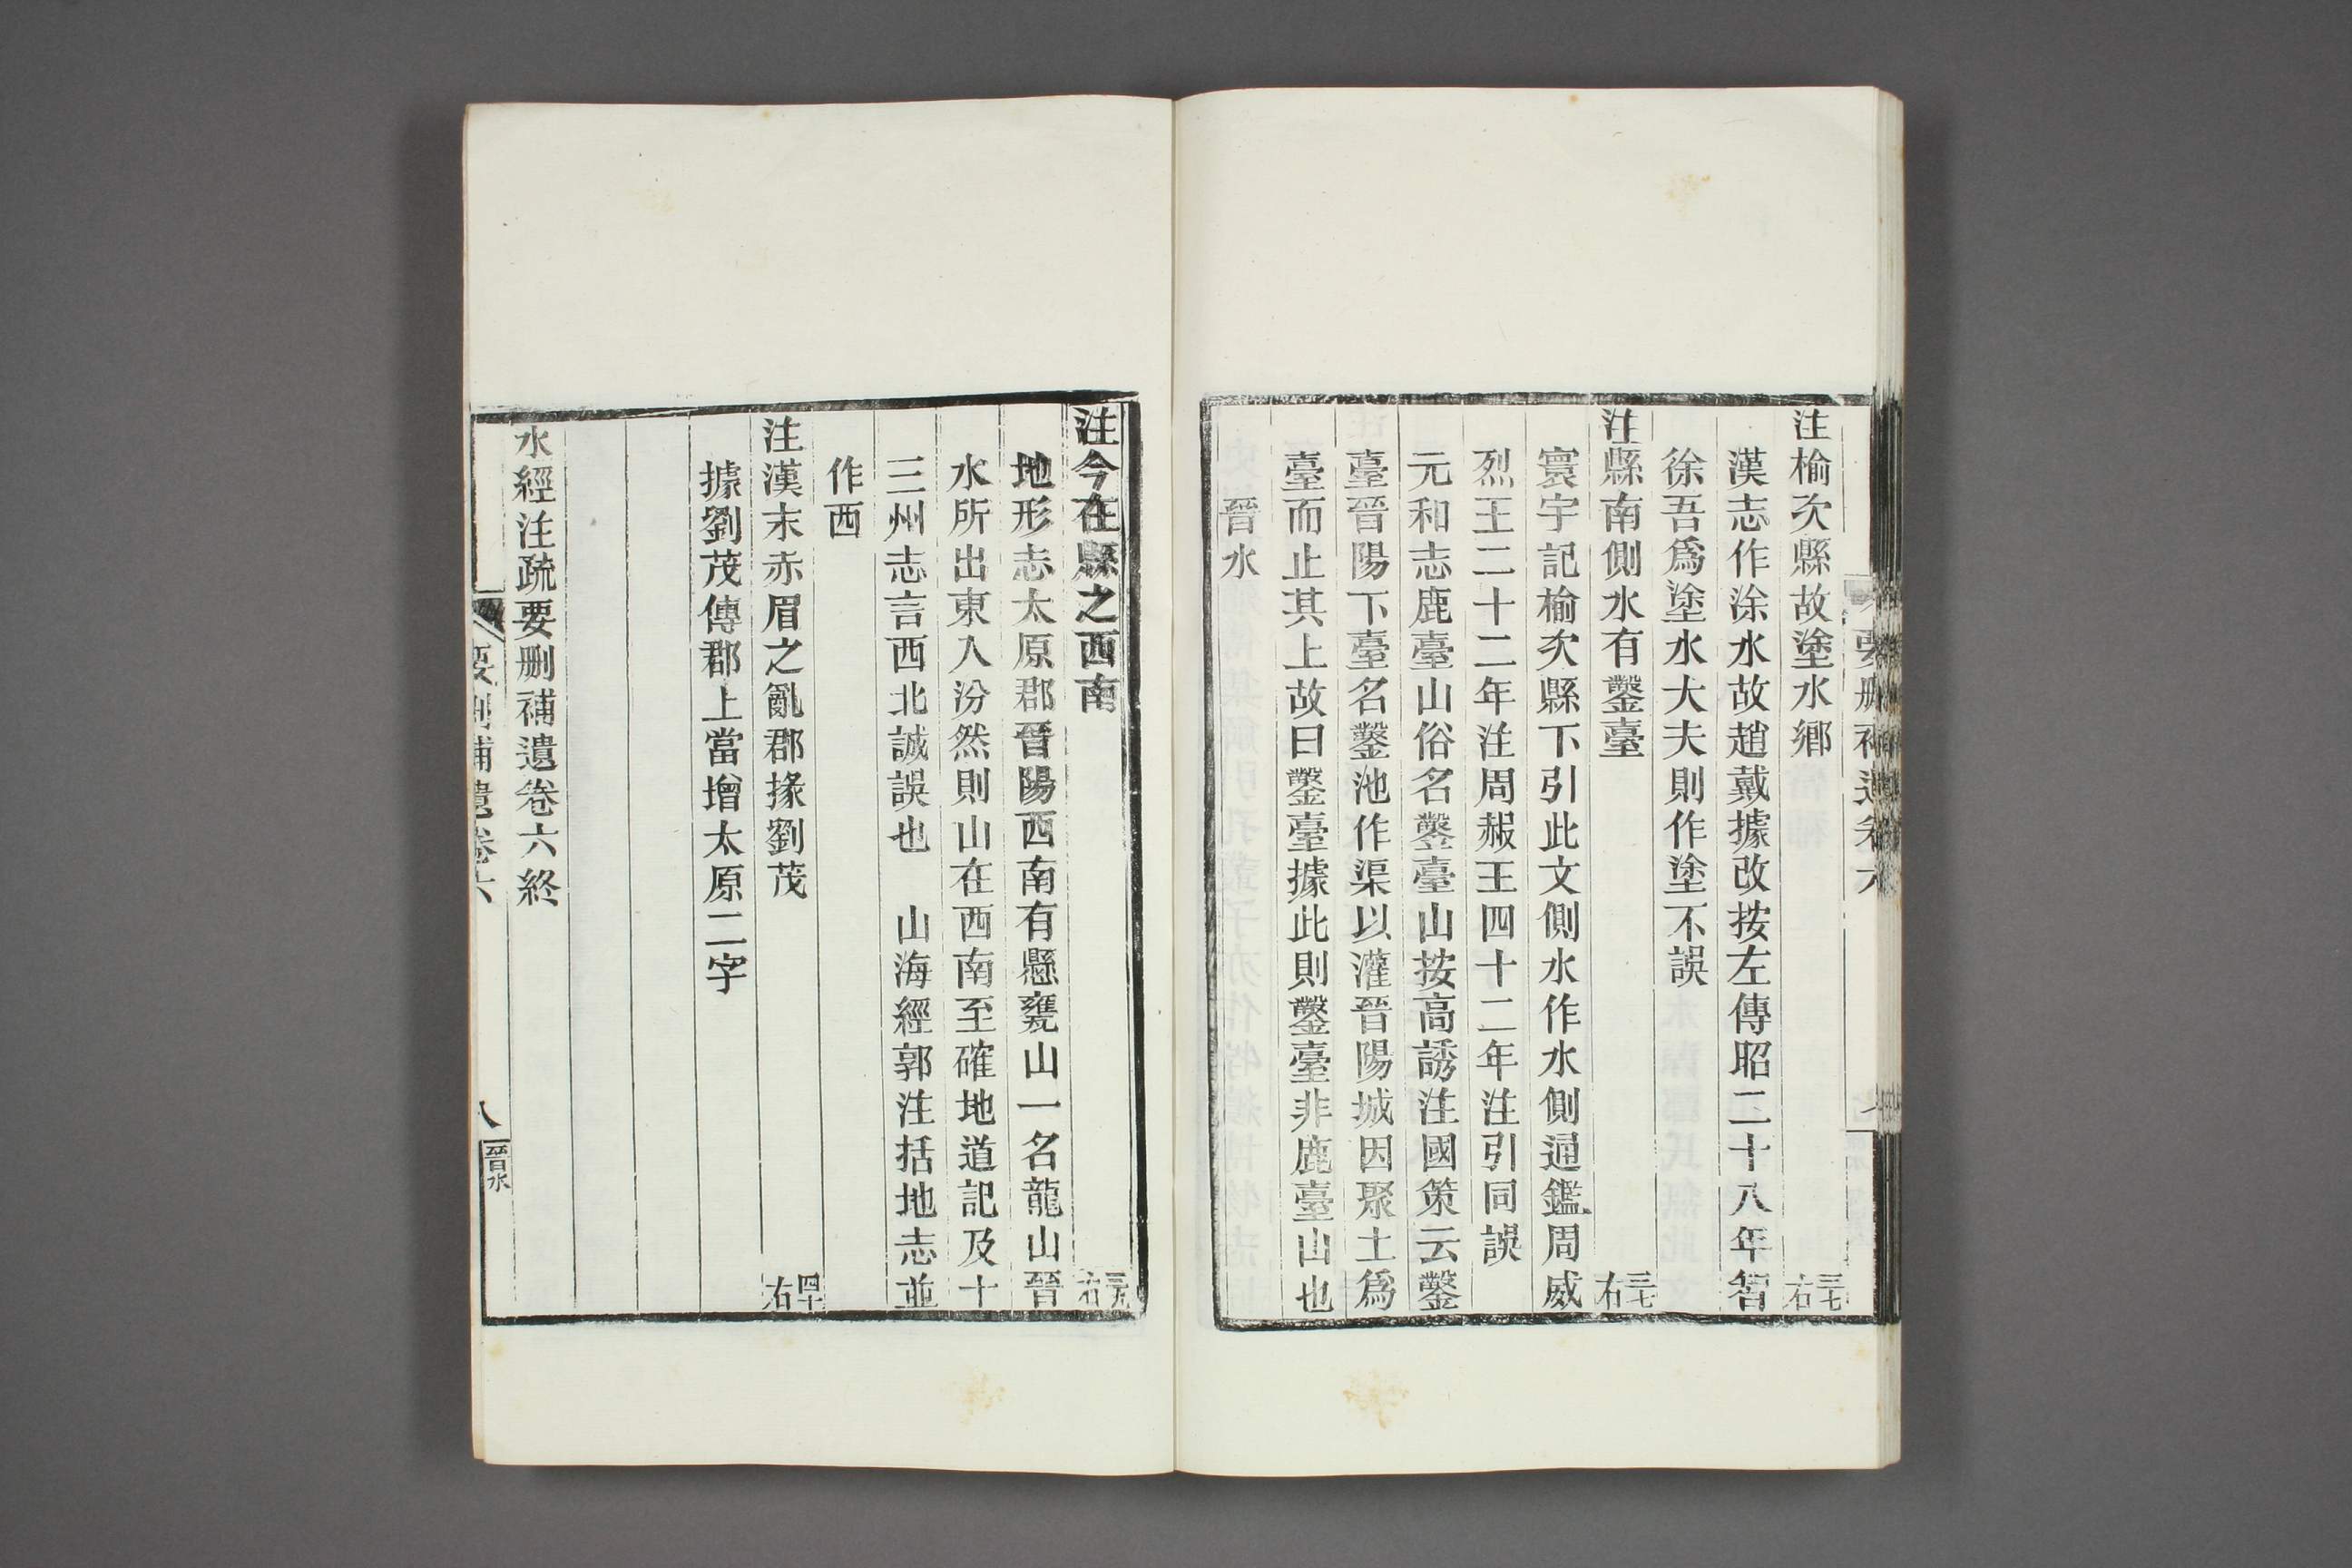 要删補遺卷六
注榆次縣故塗水鄉 三七右
漢志作涂水故趙戴據改按左傳昭二十八年智
徐吾爲塗水大夫則作塗不誤
注縣南側水有鑿臺 三七右
寰宇記榆次縣下引此文側水作水側通鑑周威
烈王二十二年注周赧王四十二年注引同誤
元和志鹿臺山俗名鑿臺山按高誘注國策云鑿
臺晉陽下臺名鑿池作渠以灌晉陽城因聚土爲
臺而止其上故曰鑿臺據此則鑿臺非鹿臺山也
晉水
注今在縣之西南 三九右
地形志太原郡晉陽西南有懸甕山一名龍山晉
水所出東入汾然則山在西南至確地道記及十
三州志言西北誠誤也 山海經郭注括地志並
作西
注漢末赤眉之亂郡掾劉茂 四十右
據劉茂傳郡上當增太原二字
水經注疏要删補遺卷六終
要刪補遺卷六 八 晉水